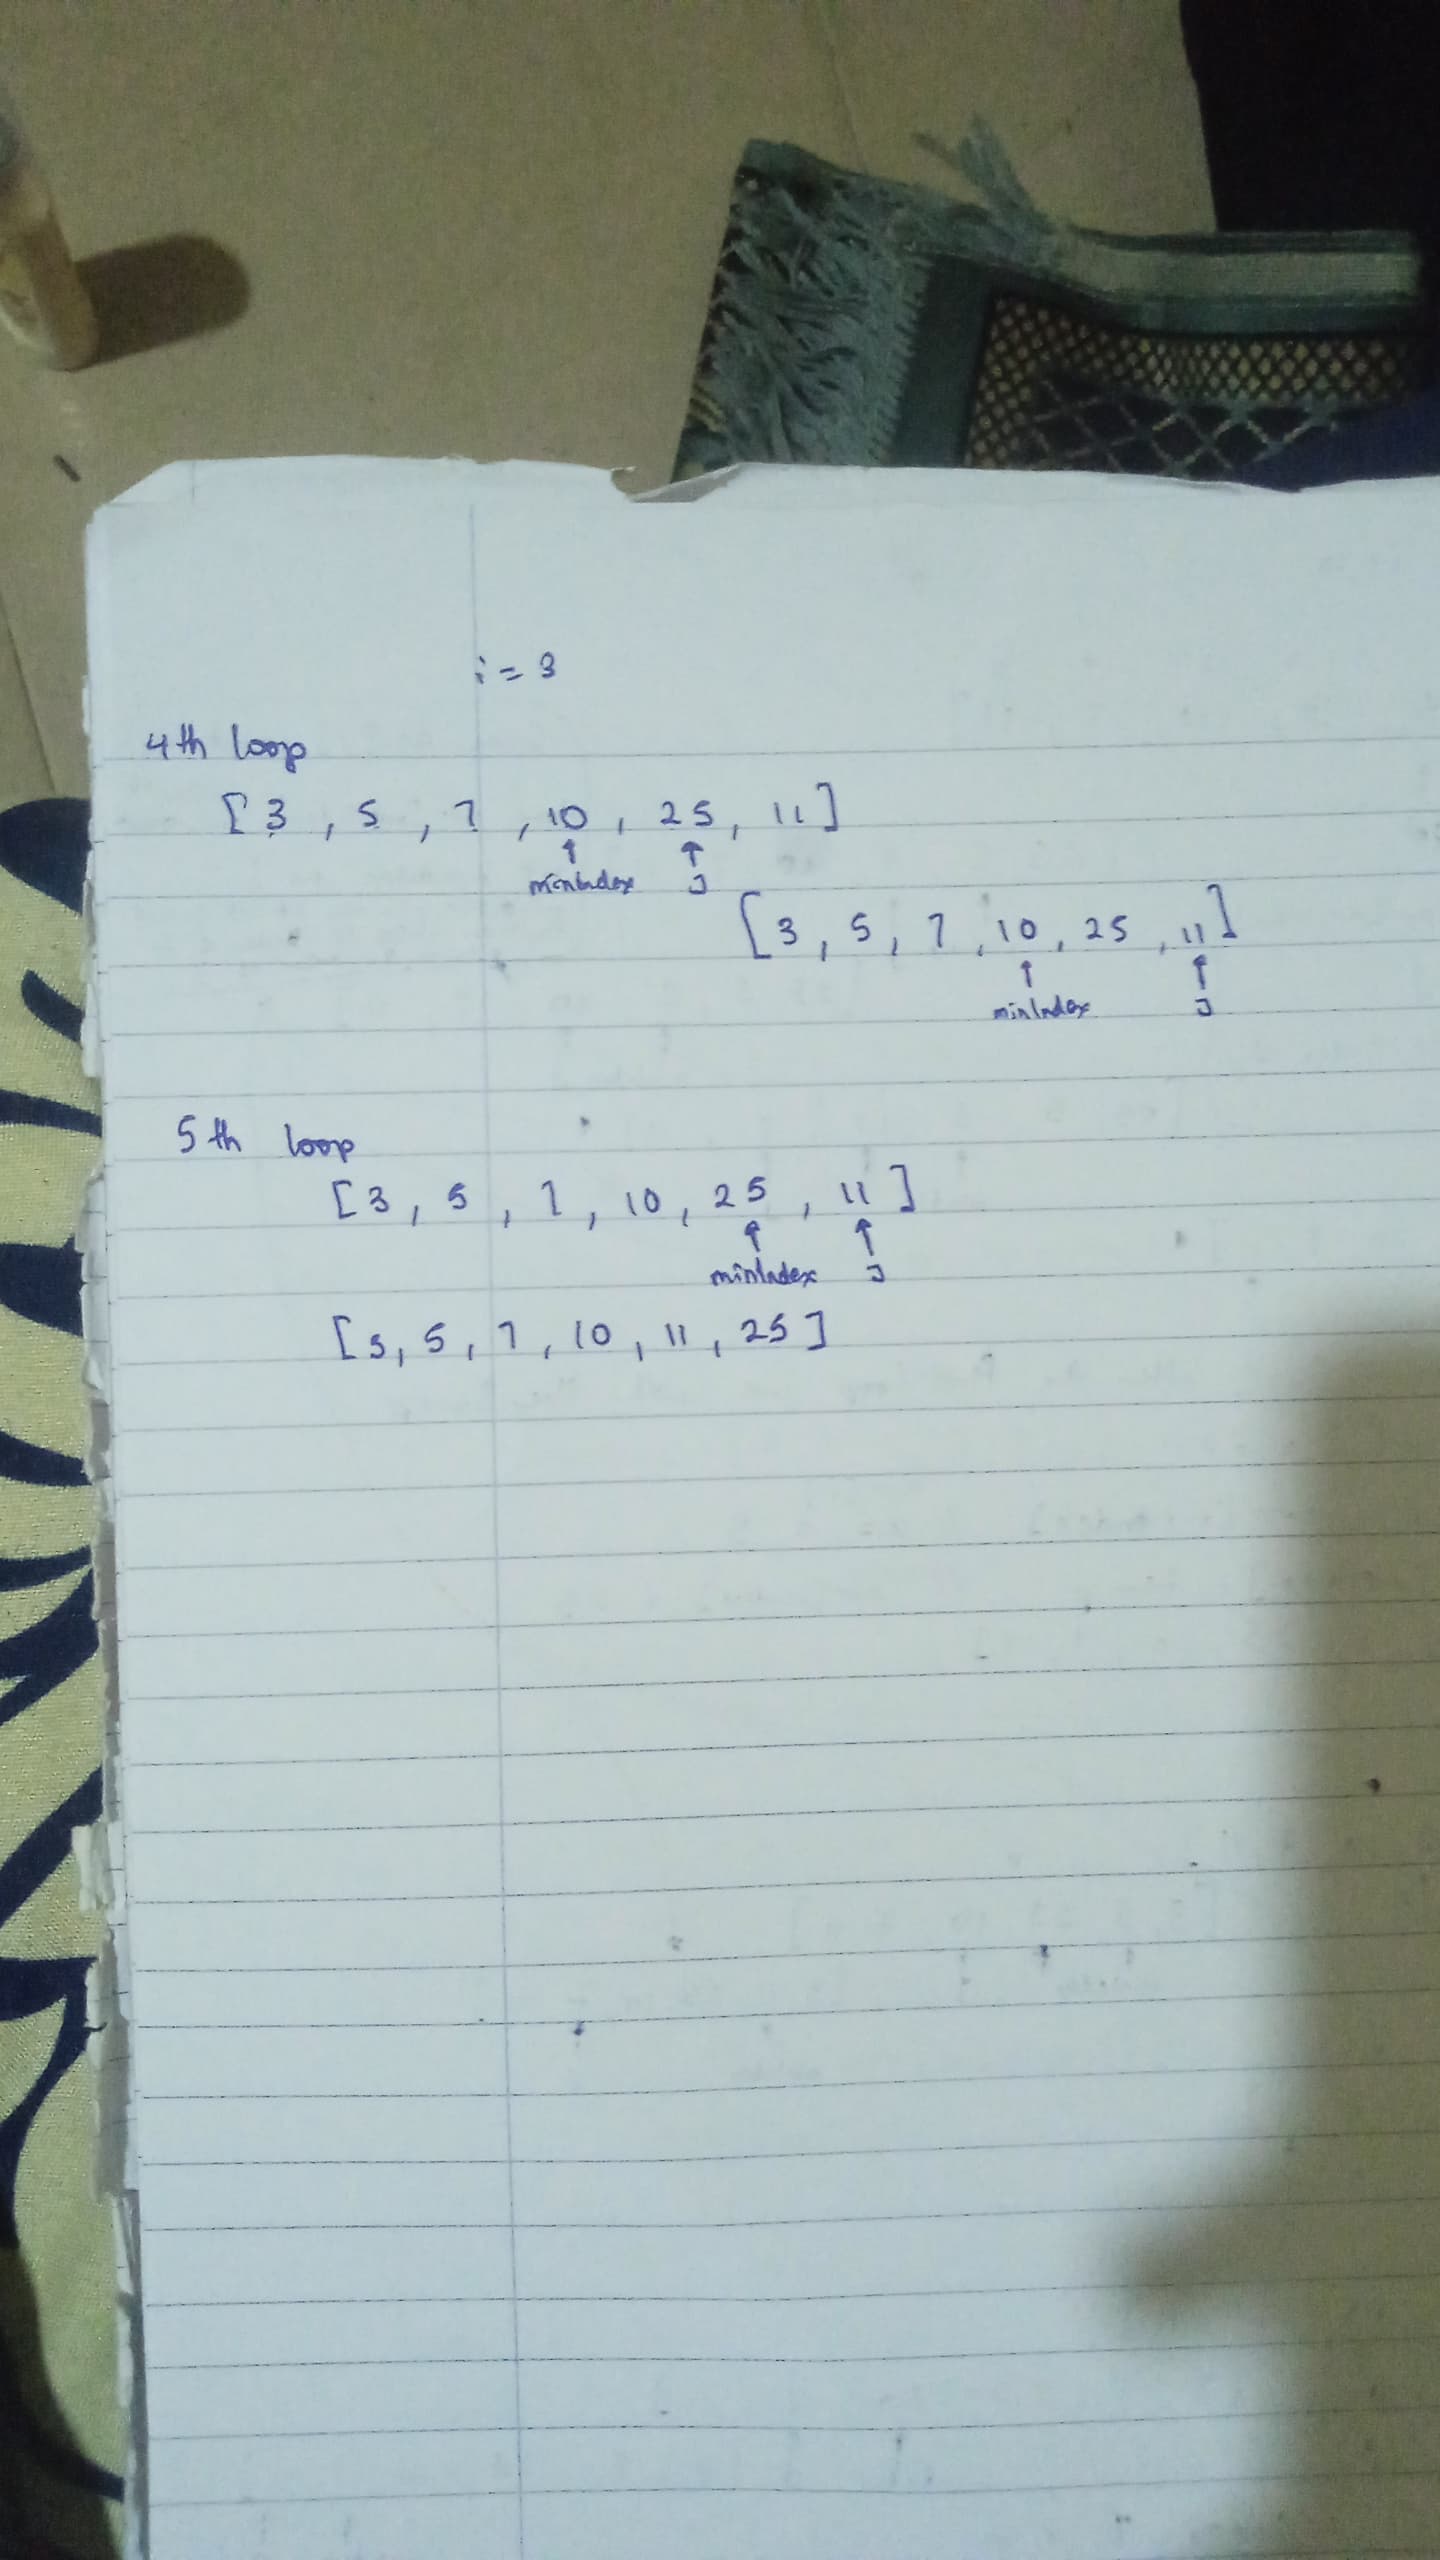 i = 3
4th loop
[ 3 , 5 , 7 , 10 , 25 , 11 ]
minIndex J
[ 3 , 5 , 7 , 10 , 25 , 11 ]
minIndex J
5th loop
[ 3 , 5 , 7 , 10 , 25 , 11 ]
minIndex J
[ 3 , 5 , 7 , 10 , 11 , 25 ]